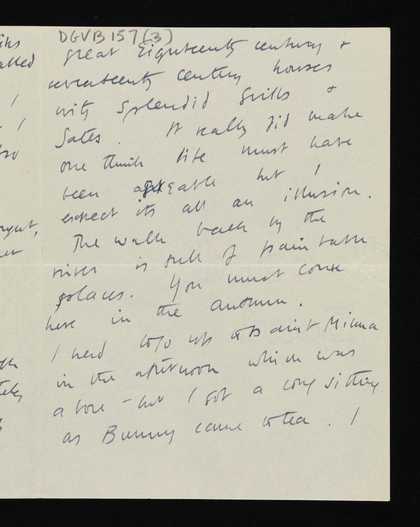 DGVB 157 (3)
great Eighteenth century &
seventeenth century houses
with splendid grills &
Gates. It really did make
one think life must have
been agreeable but I
expect its all an illusion.
The walk back by the
river is full of paintable
places. You must come
here in the autumn.
I had to go up to paint Minna
in the afternoon which was
a bore - but I got a long sitting
as Bunny came to tea. I